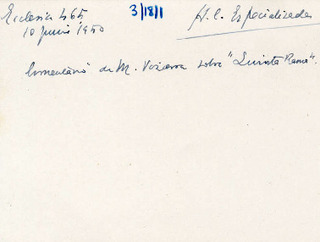 Ecclesia 465
3/18/1
H. C. Especializadas
10 Junio 1950
Comentario de M. Vizcarra sobre "Quinta Rama".